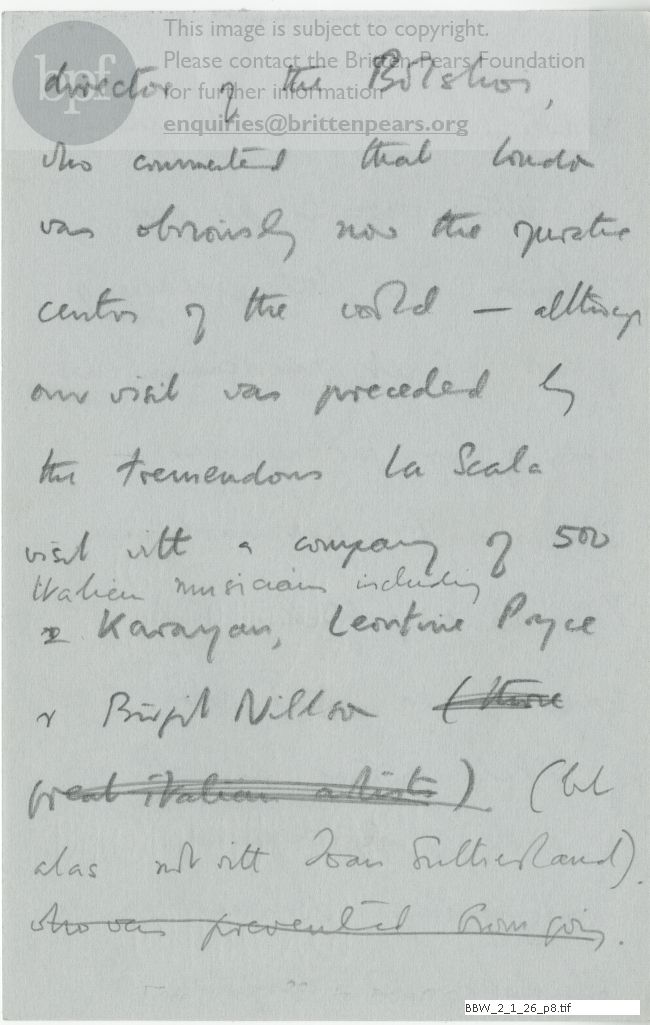 This image is subject to copyright.
Please contact the Britten-Pears Foundation
for further information
enquiries@brittenpears.org
bpf
director of the Bolshoi,
who commented that London
was obviously now the operatic
centre of the world — although
our visit was preceded by
the tremendous La Scala
visit with a company of 500
italian musicians including
Karayan, Leontine Pryce
& Birgit Nillson (three
great italian artists) (but
alas not with Joan Sutherland).
who was prevented from going.
BBW_2_1_26_p8.tif